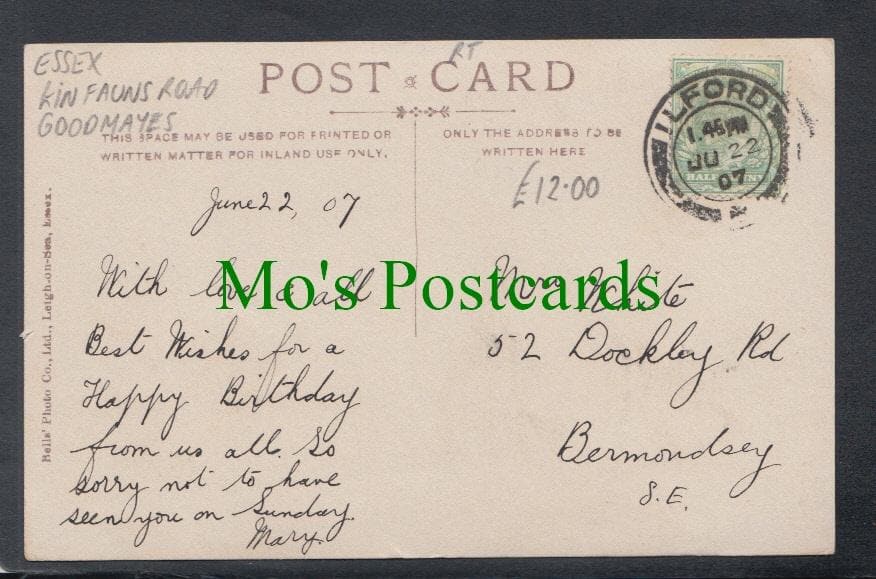 ESSEX
KINFAUNS ROAD
GOODMAYES
RT
POST CARD
THIS SPACE MAY BE USED FOR PRINTED OR
WRITTEN MATTER FOR INLAND USE ONLY.
ONLY THE ADDRESS TO BE
WRITTEN HERE
£12.00
ILFORD
1.45PM
JU 22
07
HALFPENNY
June 22, 07
With love & all
Best Wishes for a
Happy Birthday
from us all. So
sorry not to have
seen you on Sunday.
Mary.
Mo's Postcards
Mrs White
52 Dockley Rd
Bermondsey
S.E.
Bells' Photo Co., Ltd., Leigh-on-Sea, Essex.